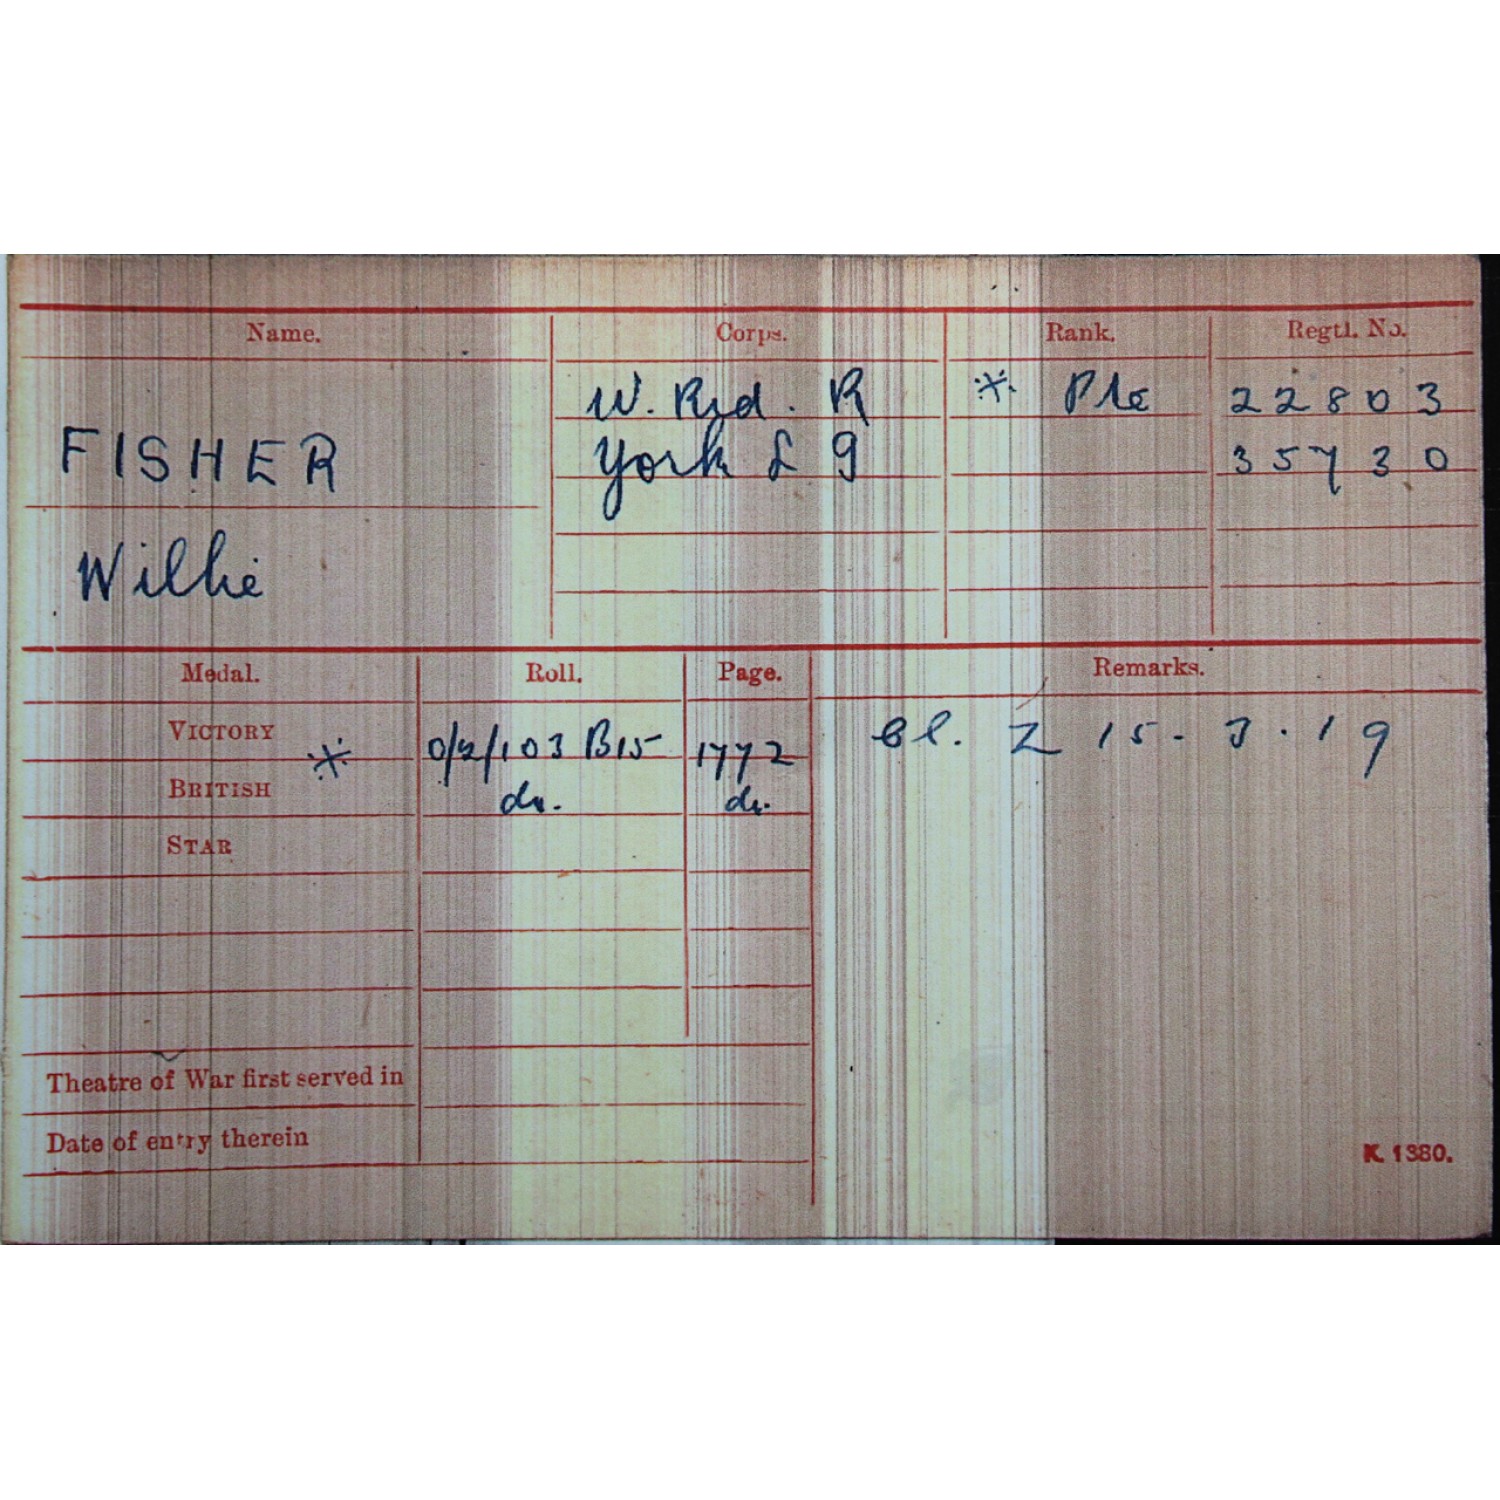 Name. Corps. Rank. Regtl. No.
W. Rid. R ※ Pte 22803
FISHER York & L 9 35730
Willie
Medal. Roll. Page. Remarks.
VICTORY ※ 0/2/103 B15 1772 Cl. Z 15-3.19
BRITISH do. do.
STAR
Theatre of War first served in
Date of entry therein
K. 1380.